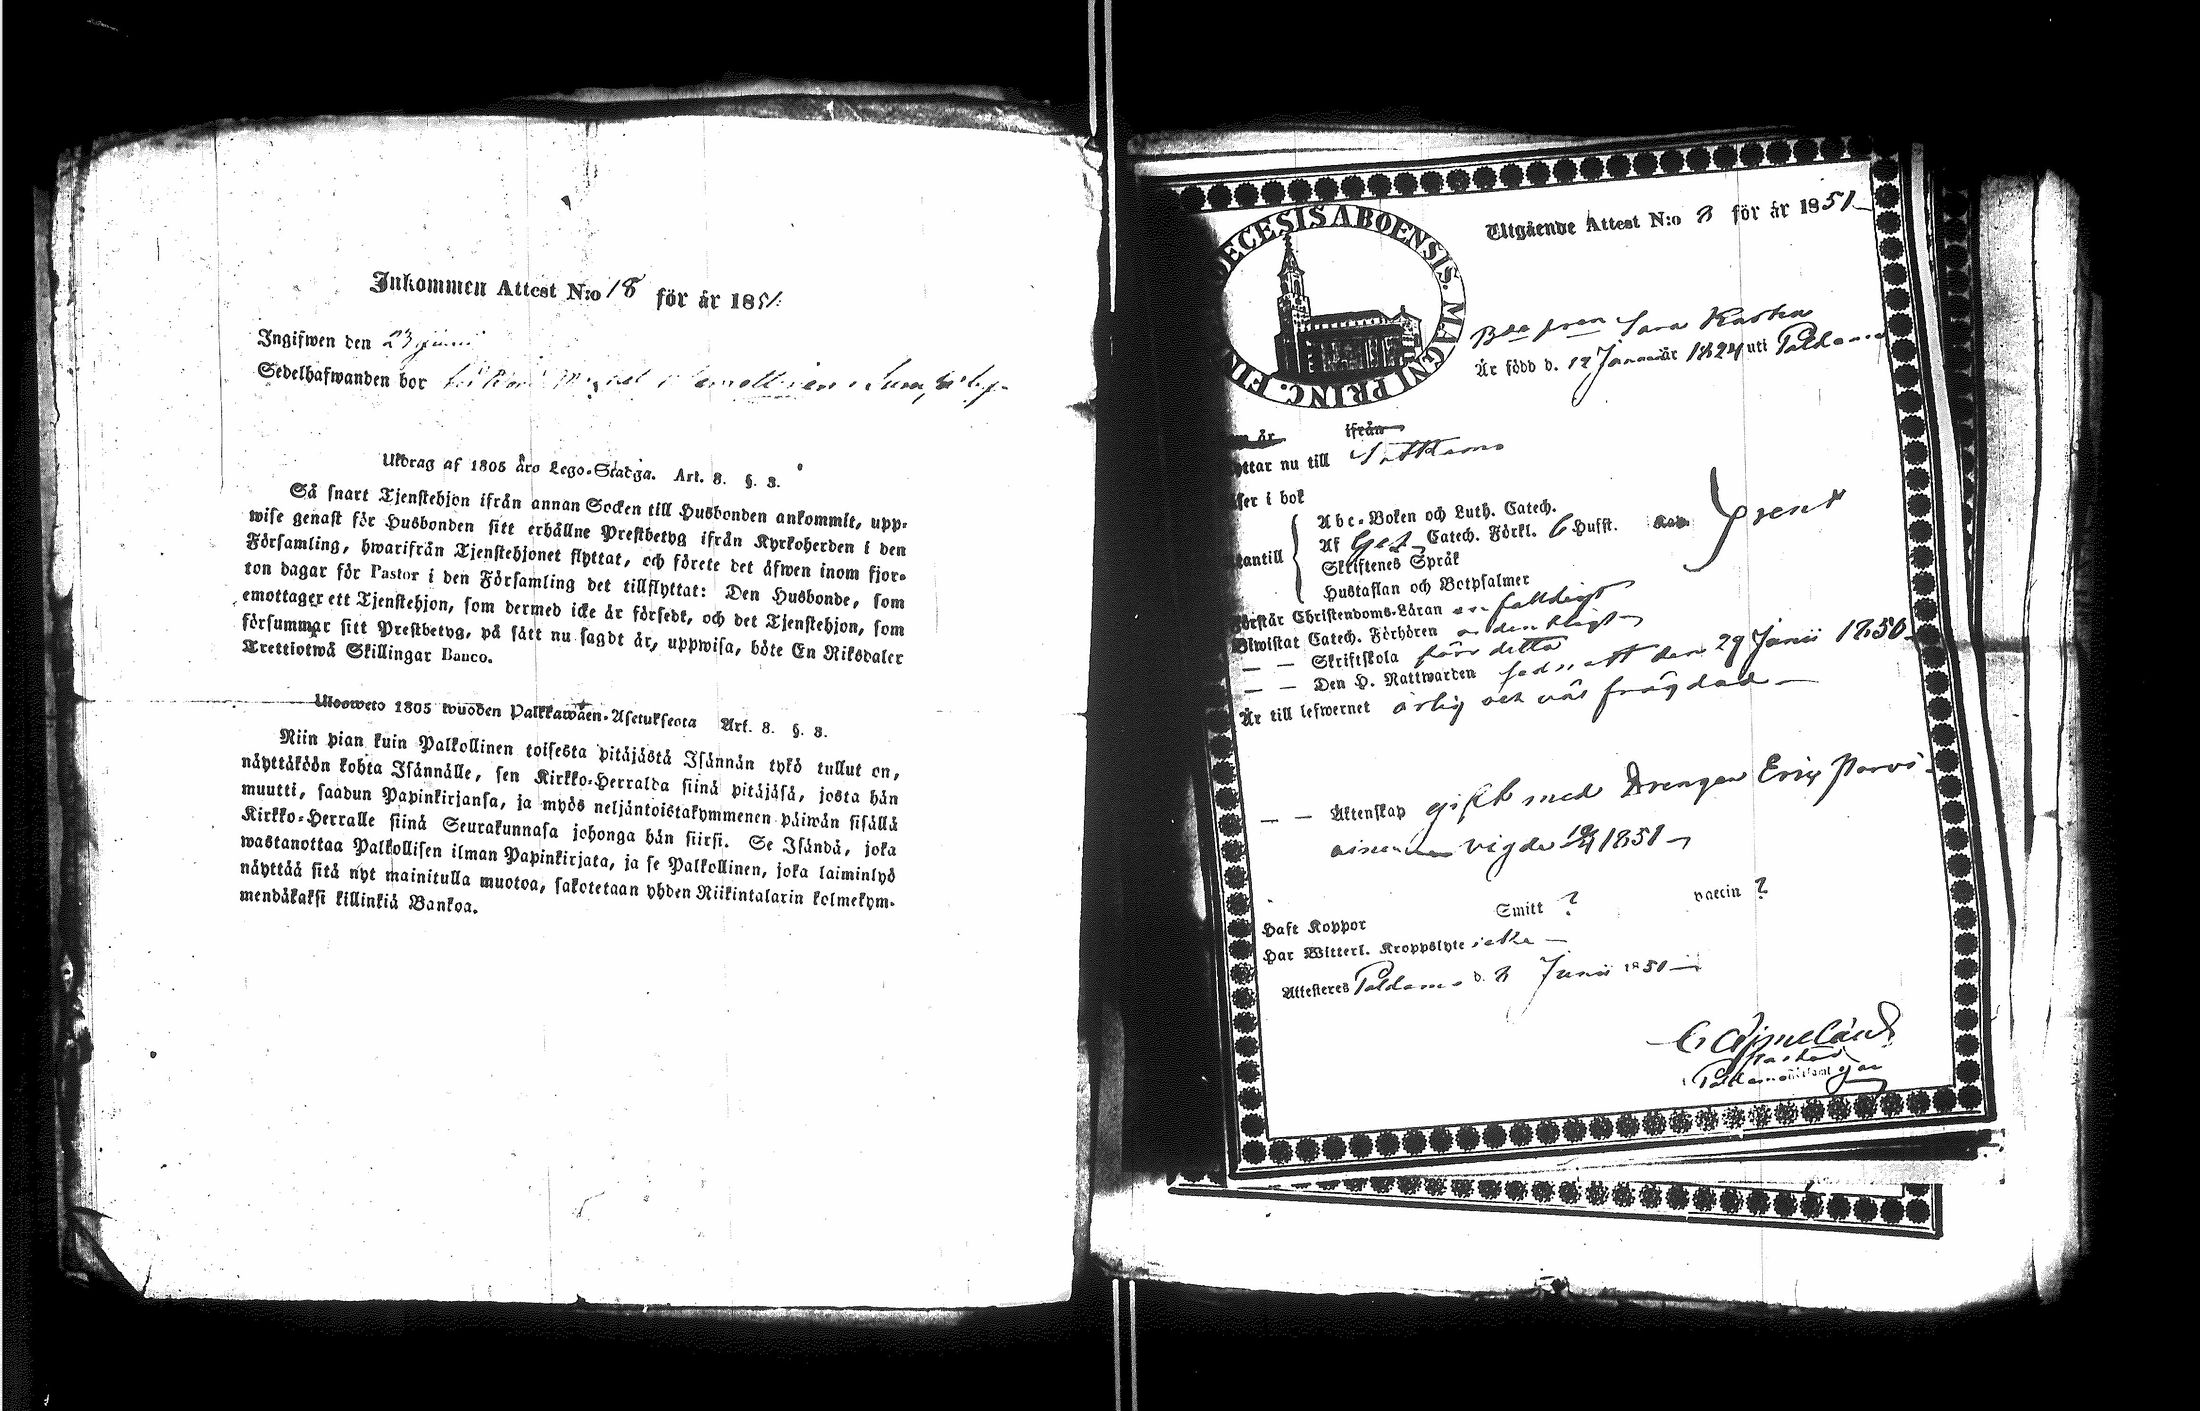 Inkommen Attest N:o 18 för år 1851.
Ingifwen den 23 Junii
Sedelhafwanden bor
Utdrag af 1805 års Lego-Stadga. Art. 8. §. 3.
Så snart Tjenstehjon ifrån annan Socken till Husbonden ankommit, upp-
wise genast för Husbonden sitt erhållne Prestbetyg ifrån Kyrkoherden i den
Församling, hwarifrån Tjenstehjonet flyttat, och förete det äfwen inom fjor-
ton dagar för Pastor i den Församling det tillflyttat: Den Husbonde, som
emottager ett Tjenstehjon, som dermed icke är försedt, och det Tjenstehjon, som
försummar sitt Prestbetyg, på sätt nu sagdt är, uppwisa, böte En Riksdaler
Trettiotwå Skillingar Banco.
Ulosweto 1805 wuoden Palkkawäen-Asetuksesta Art. 8. §. 3.
Niin pian kuin Palkollinen toisesta pitäjästä Isännän tykö tullut on,
näyttäköön kohta Isännälle, sen Kirkko-Herralda siinä pitäjäsä, josta hän
muutti, saadun Papinkirjansa, ja myös neljäntoistakymmenen päiwän sisällä
Kirkko-Herralle siinä Seurakunnasa johonga hän siirsi. Se Isändä, joka
wastanottaa Palkollisen ilman Papinkirjata, ja se Palkollinen, joka laiminlyö
näyttää sitä nyt mainitulla muotoa, sakotetaan yhden Riikintalarin kolmekym-
mendäkaksi killinkiä Bankoa.
DIECESIS ABOENSIS. MAGNI PRINC. FIN
Utgående Attest N:o 8 för år 1851
Sara Kaisa
Är född d. 12 Januarii år 1824 uti Paldamo
är ifrån
yttar nu till Sotkamo
äser i bok
Abc-Boken och Luth. Catech.
Af Catech. Förkl. 6 Hufst.
utantill Skriftenes Språk
Hustaflan och Botpsalmer
Förstår Christendoms-Läran enfaldigt
Biwistat Catech. Förhören ordenteligt
— — Skriftskola förr detta
— — Den H. Nattwarden sednast den 29 Junii 1850
Är till lefwernet ärlig och väl frägdad
— — Äktenskap gift med Drengen Eric Parvi-
ainen vigde 1851
Haft Koppor Smitt ? vaccin ?
Har Witterl. Kroppslyte icke
Attesteras Paldamo d. 8 Junii 1851